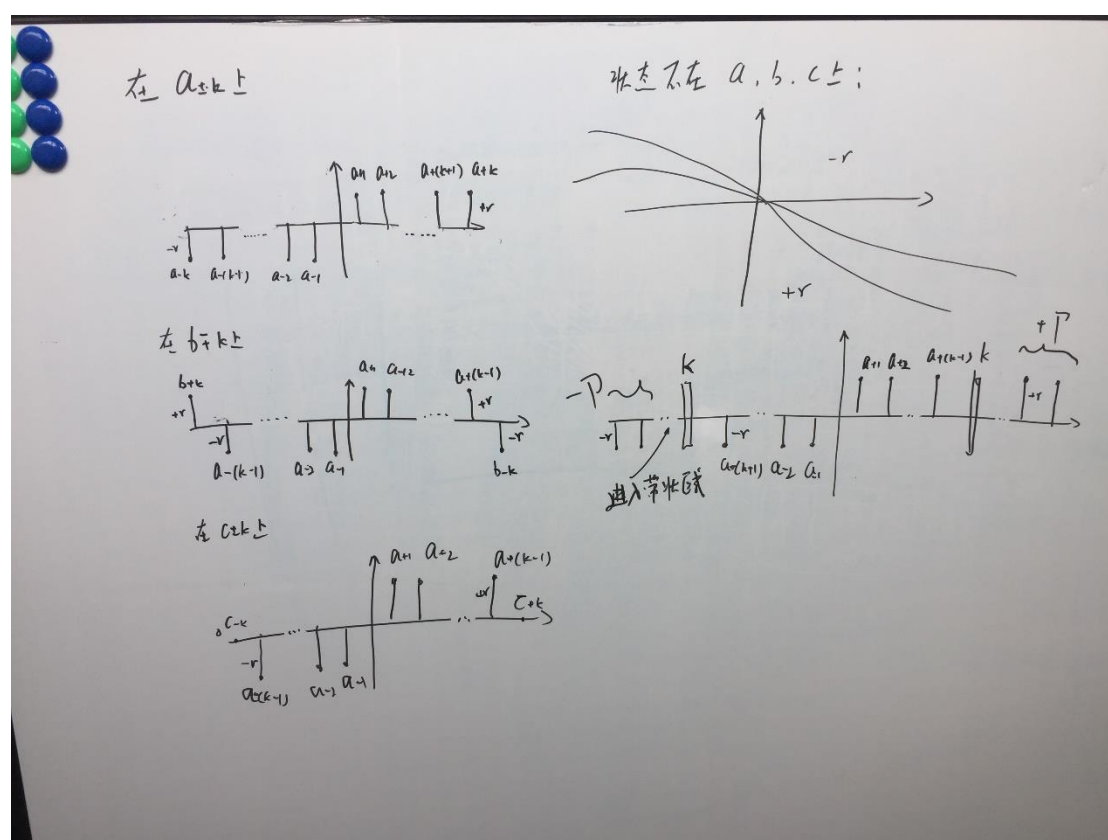 在 a±k上
a+1 a+2 a+(k+1) a+k
+r
-r
a-k a-(k+1) a-2 a-1
在 b∓k上
b+k
a+1 a+2 a+(k-1)
+r +r
-r -r
a-(k-1) a-2 a-1 b-k
在 c±k上
a+1 a+2 a+(k-1)
c-k +r c+k
-r
a-(k-1) a-2 a-1
状态不在 a.b.c上:
-r
+r
+P
-P k a+1 a+2 a+(k-1) k
+r
-r -r
a-(k+1) a-2 a-1
进入带状区域